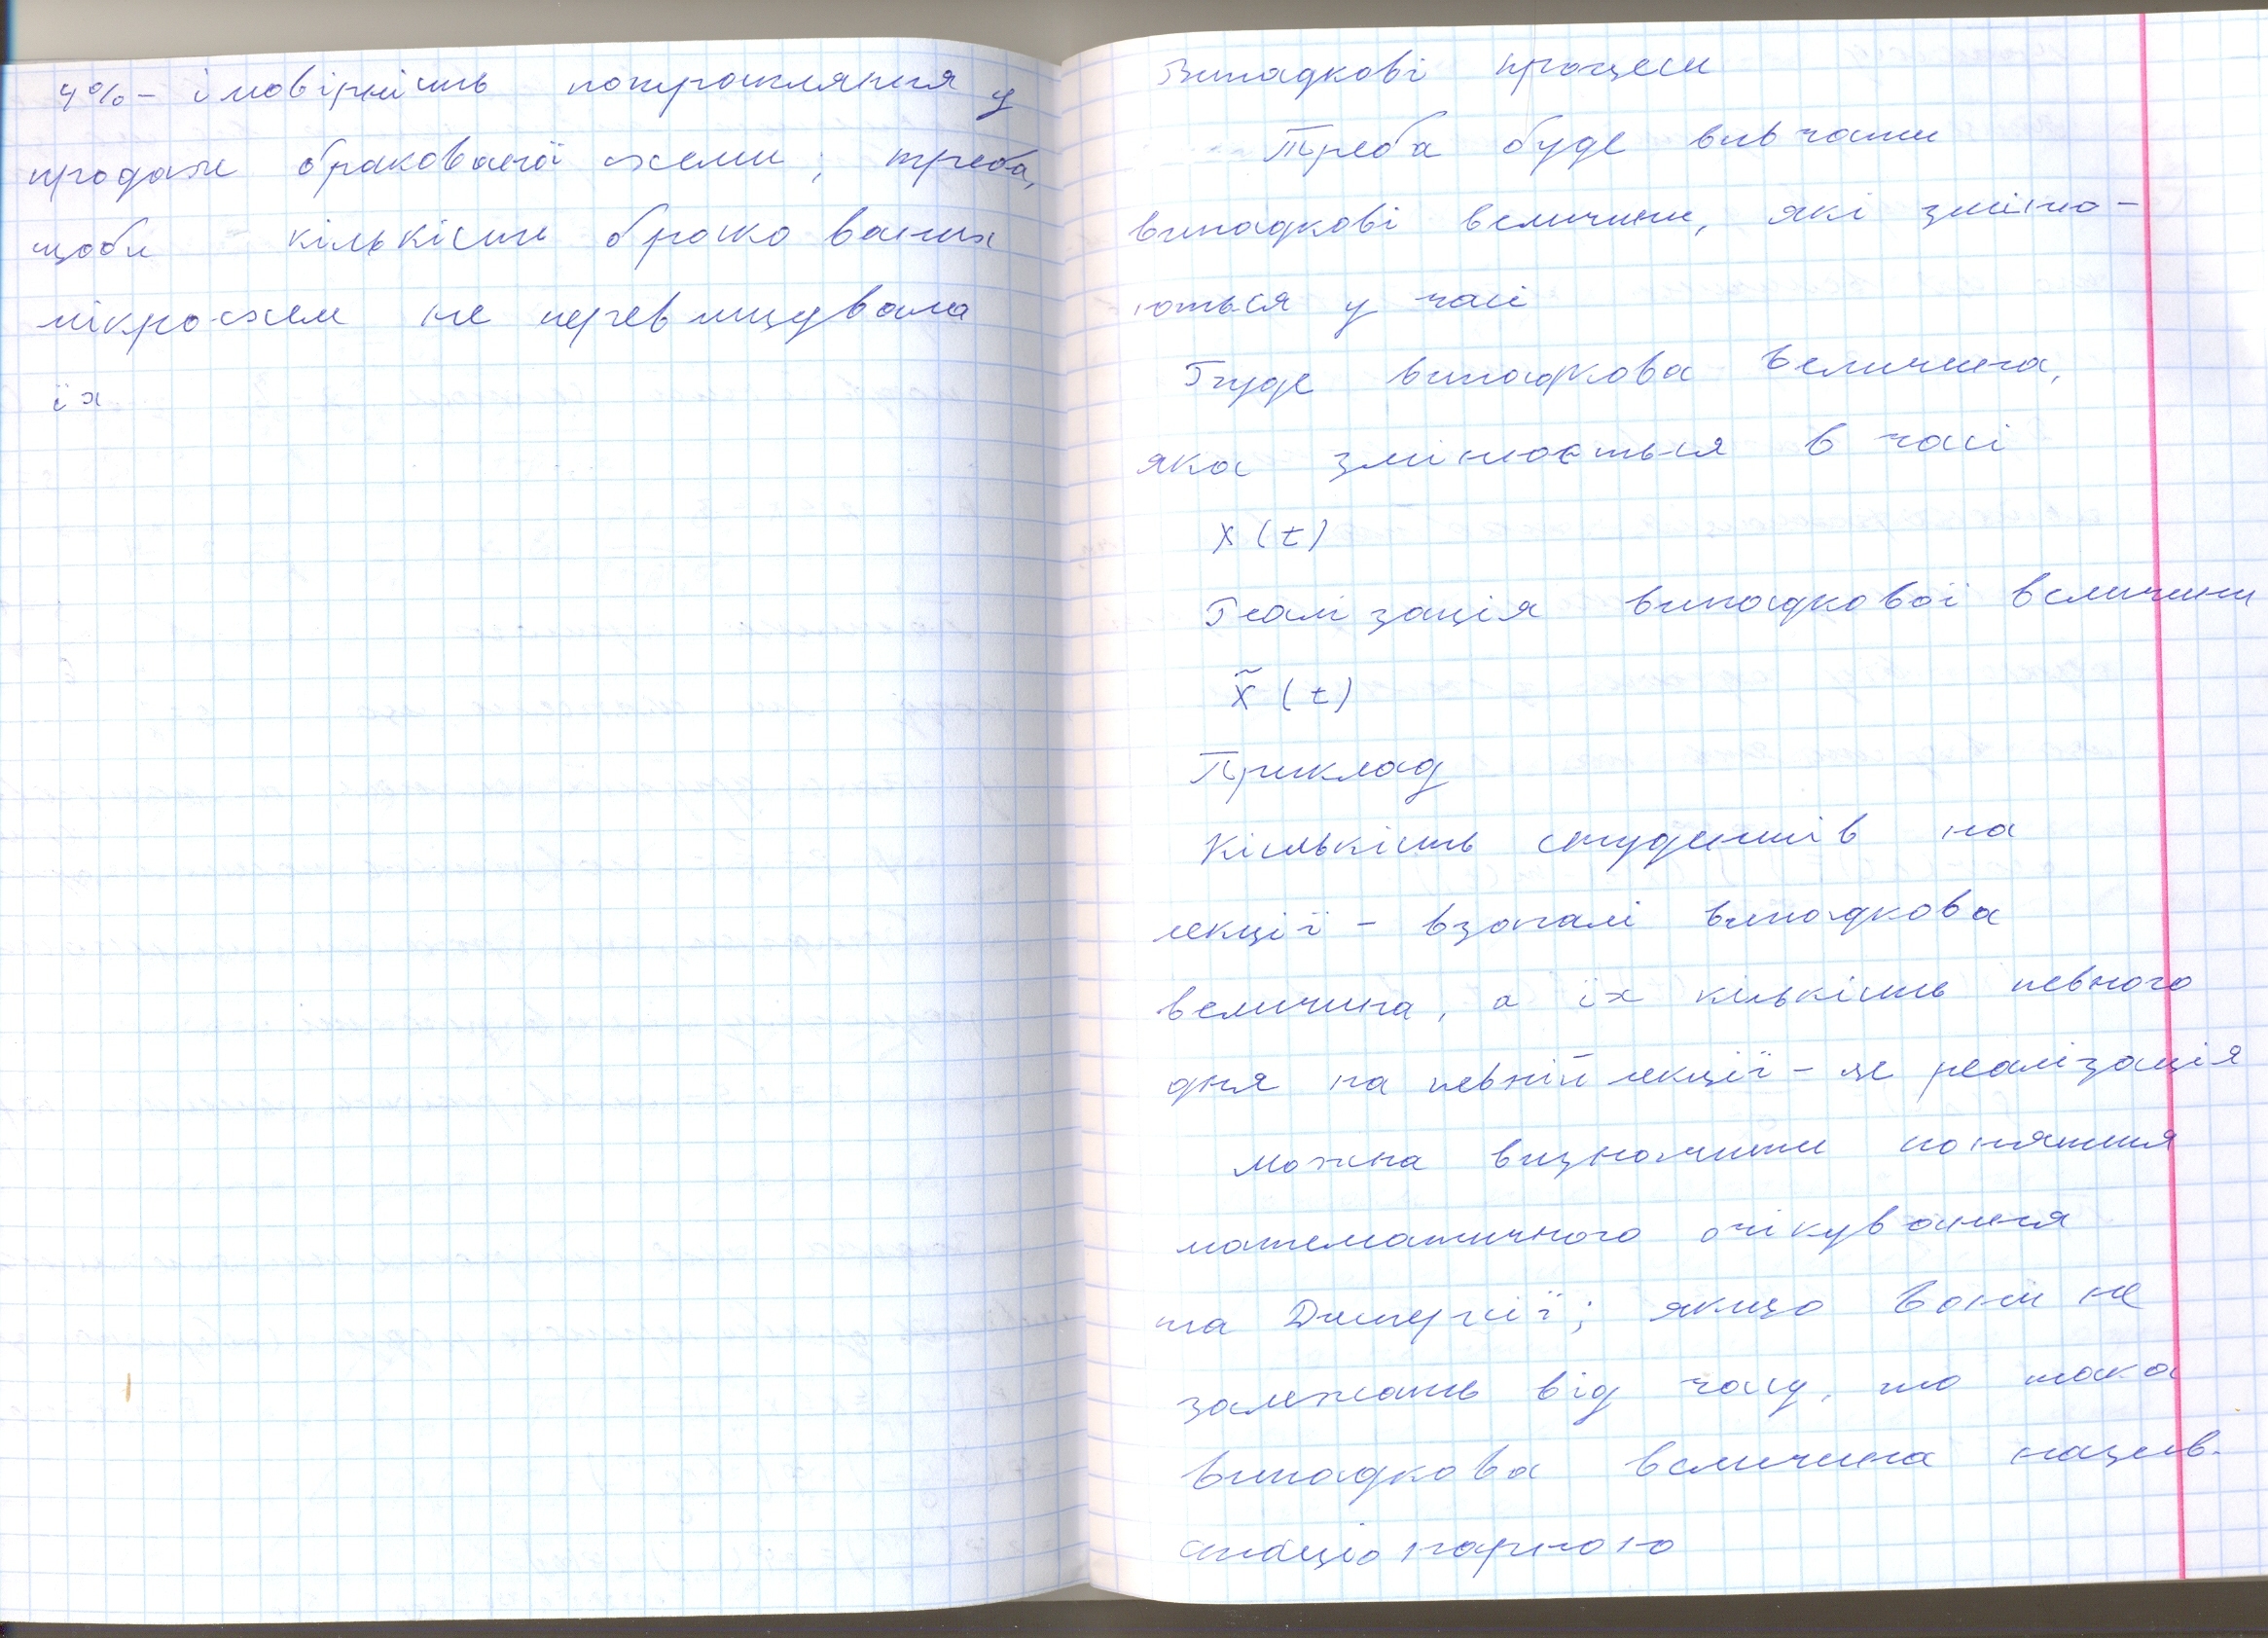 4% – імовірність потрапляння у
продаж бракованої схеми; треба,
щоби кількість бракованих
мікросхем не перевищувала
їх
Випадкові процеси
Треба буде вивчати
випадкові величини, які зміню-
ються у часі
Буде випадкова величина,
яка змінюється в часі
X(t)
Реалізація випадкової величини
x̃(t)
Приклад
Кількість студентів на
лекції – взагалі випадкова
величина, а їх кількість певного
дня на певній лекції – це реалізація
Можна визначити поняття
математичного очікування
та Дисперсії; якщо вони не
залежать від часу, то така
випадкова величина назив.
стаціонарною